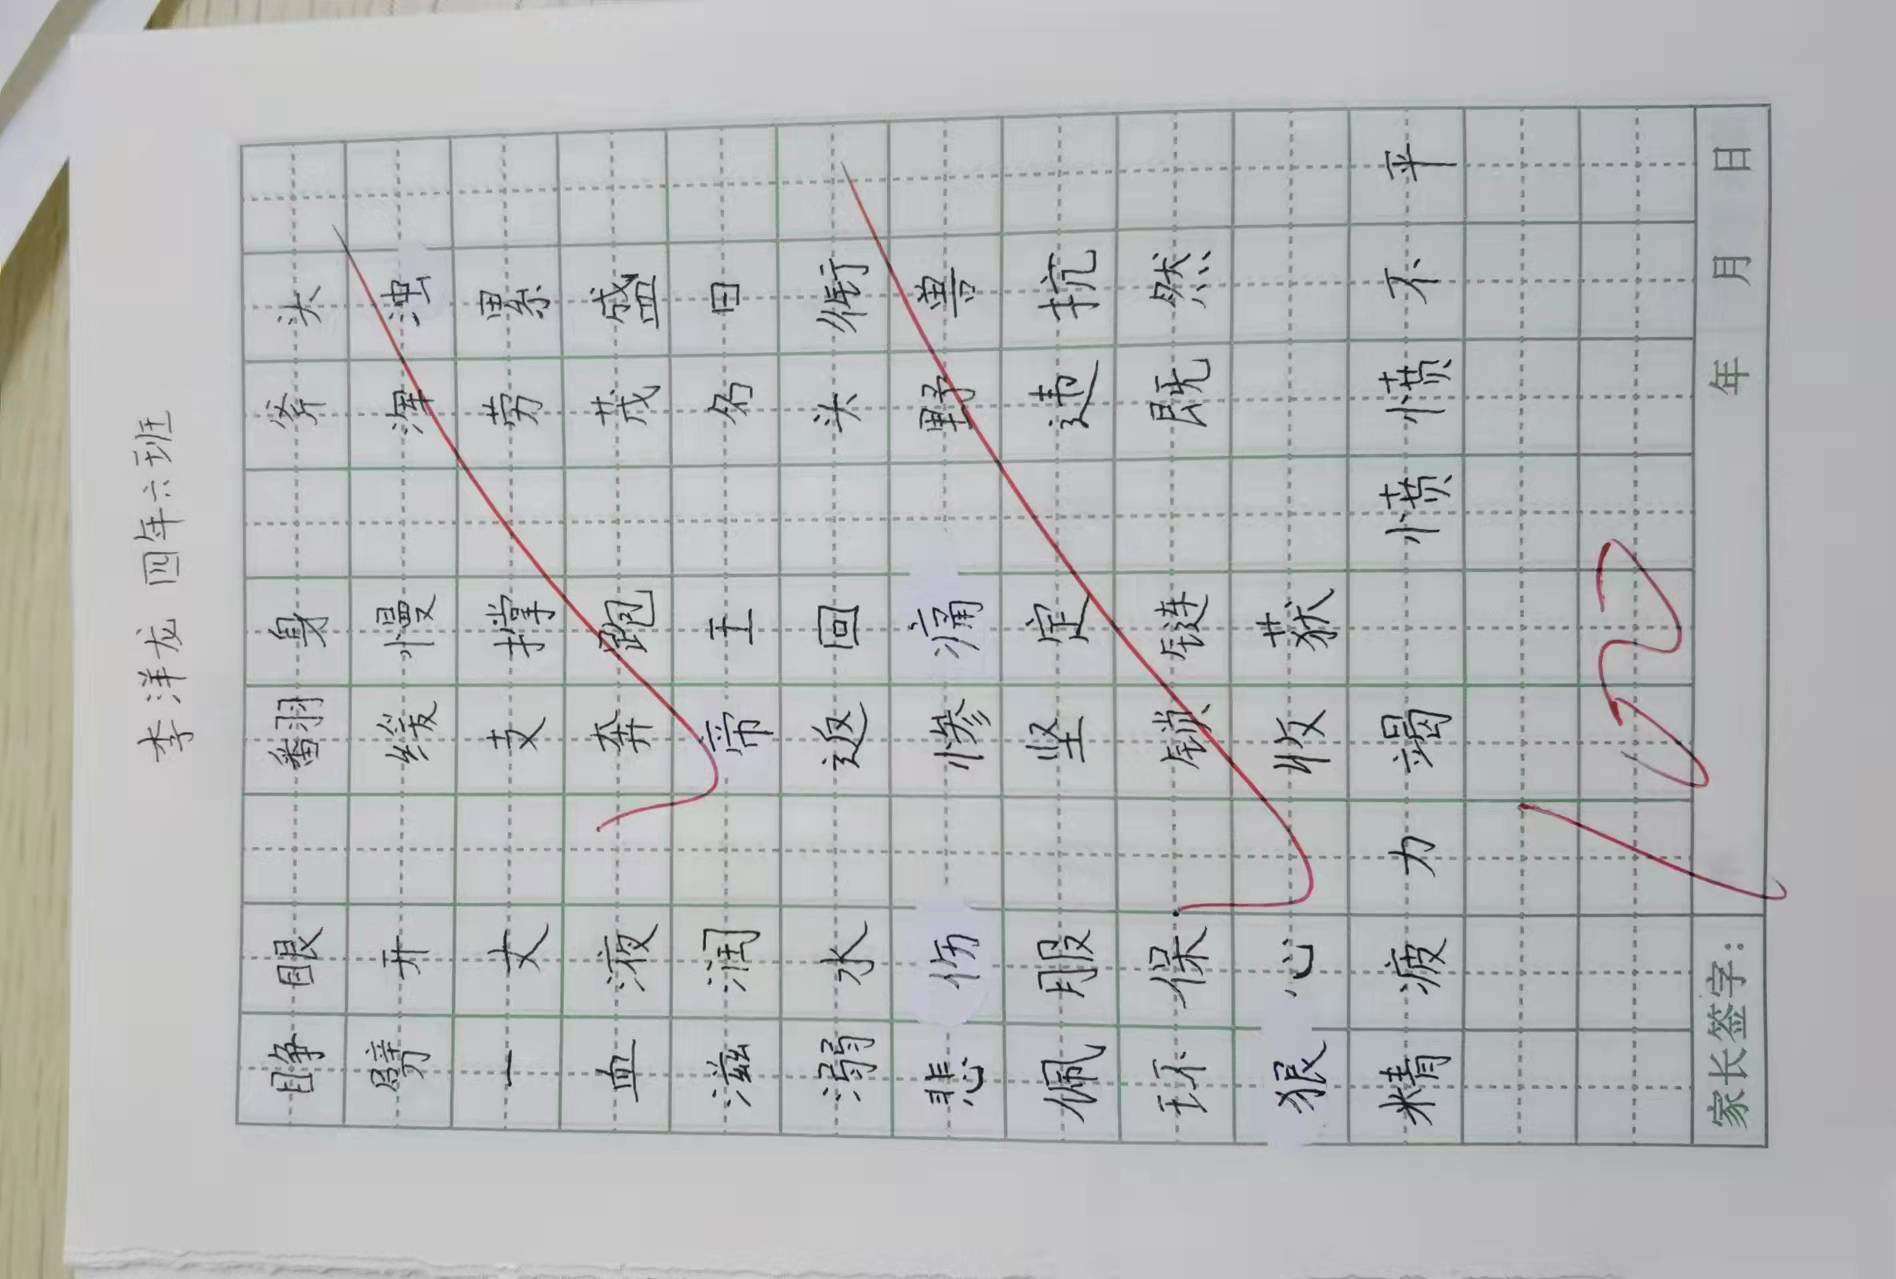 李洋龙 四年六班
睁眼 翻身 斧头
劈开 缓慢 浑浊
一丈 支撑 劳累
血液 奔跑 茂盛
滋润 帝王 名曰
溺水 返回 头衔
悲伤 惨痛 野兽
佩服 坚定 违抗
环保 锁链 既然
狠心 收获
精疲力竭 愤愤不平
家长签字： 年 月 日